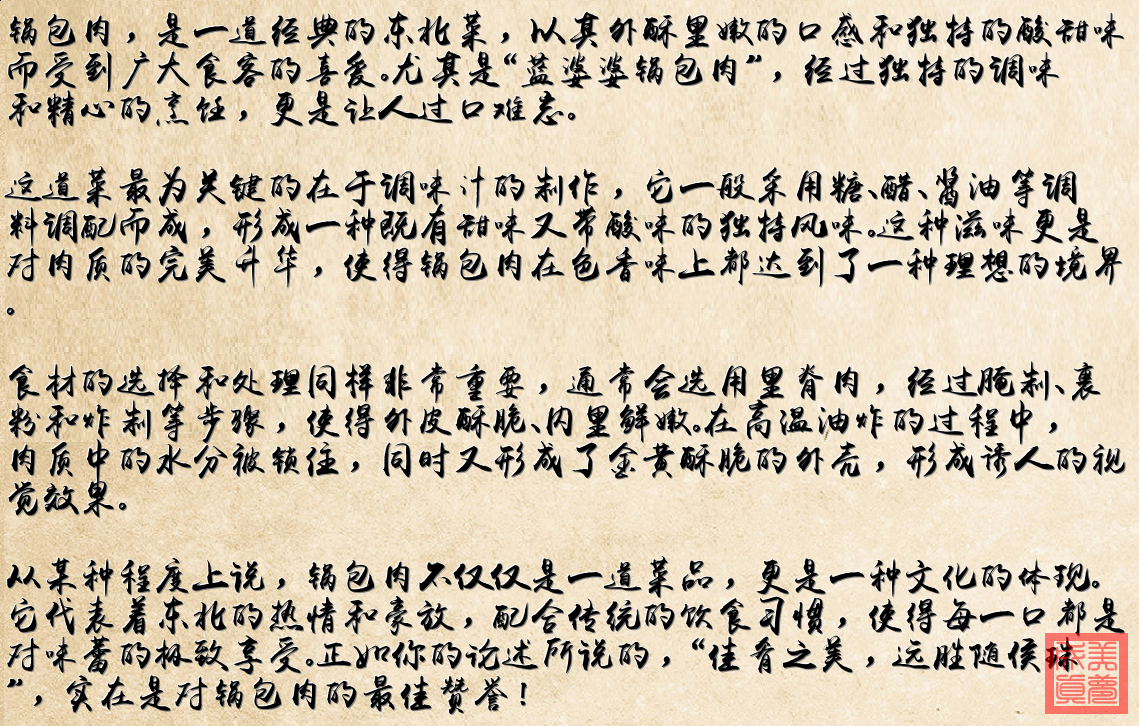 锅包肉，是一道经典的东北菜，以其外酥里嫩的口感和独特的酸甜味
而受到广大食客的喜爱。尤其是“蓝婆婆锅包肉”，经过独特的调味
和精心的烹饪，更是让人过口难忘。
这道菜最为关键的在于调味汁的制作，它一般采用糖、醋、酱油等调
料调配而成，形成一种既有甜味又带酸味的独特风味。这种滋味更是
对肉质的完美升华，使得锅包肉在色香味上都达到了一种理想的境界
。
食材的选择和处理同样非常重要，通常会选用里脊肉，经过腌制、裹
粉和炸制等步骤，使得外皮酥脆、内里鲜嫩。在高温油炸的过程中，
肉质中的水分被锁住，同时又形成了金黄酥脆的外壳，形成诱人的视
觉效果。
从某种程度上说，锅包肉不仅仅是一道菜品，更是一种文化的体现。
它代表着东北的热情和豪放，配合传统的饮食习惯，使得每一口都是
对味蕾的极致享受。正如你的论述所说的，“佳肴之美，远胜随侯珠
”，实在是对锅包肉的最佳赞誉！